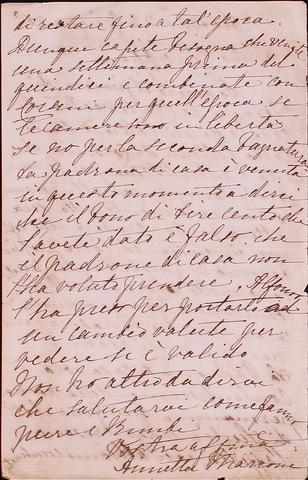 di restare fino a tal'epoca.
Dunque capite bisogna che venite
una settimana prima del
quindici e combinate con
per quell'epoca se
le camere sono in libertà
se no per la seconda bagnatura
La padrona di casa è venuta
in questo momento a dirci
che il bono di lire cento che
l'avete dato è falso, che
il padrone di casa non
l'ha voluto prendere, Alfonso
l'ha preso per portarlo ad
un cambio valute per
vedere se è valido
Non ho altro da dirvi
che salutarvi come fanno
pure i Bimbi
Vostra aff.ma
Annetta